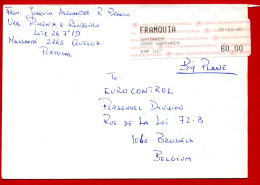 From: Joaquim Alexandre R. Branco
Urb. Pimenta e Rendeiro
Lte 26 7º D
Massamá 2745 Queluz
Portugal
FRANQUIA
60,00
By Plane
To:
EUROCONTROL
Personnel Division
Rue de la Loi 72-B
1040 Brussels
Belgium